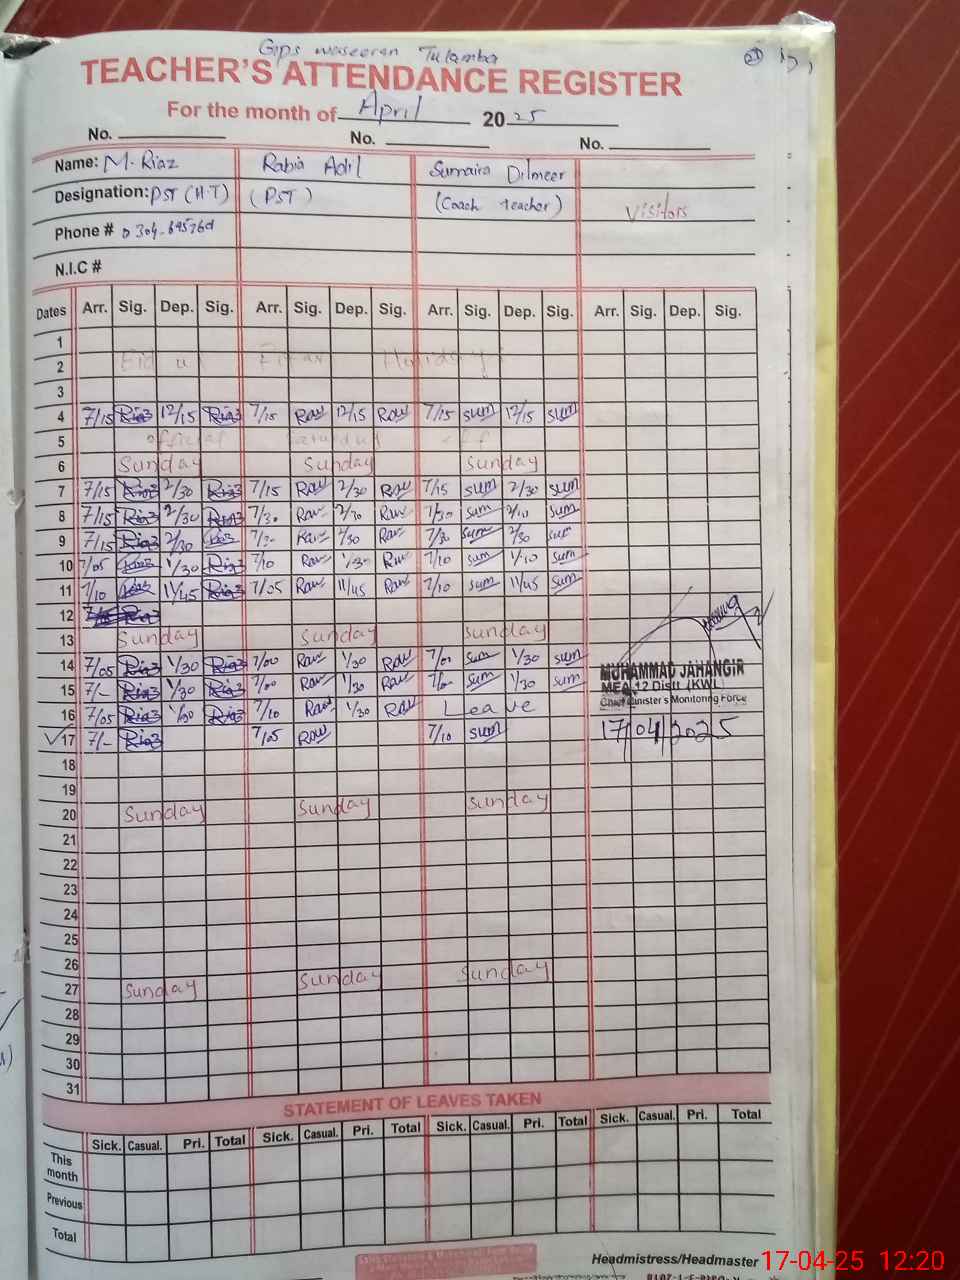 Gips waseeran Tulamba
TEACHER'S ATTENDANCE REGISTER
For the month of April 2025
No. No. No.
Name: M. Riaz Rabia Adil Sumaira Dilmeer
Designation: PST (H.T) (PST) (Coach teacher) Visitors
Phone #
N.I.C #
Dates Arr. Sig. Dep. Sig. Arr. Sig. Dep. Sig. Arr. Sig. Dep. Sig. Arr. Sig. Dep. Sig.
1
2 Eid ul Fitar Holiday
3
4 7/15 Riaz 12/15 Riaz 7/15 Raw 12/15 Raw 7/15 sum 12/15 sum
5 official saturday off
6 Sunday Sunday Sunday
7 7/15 Riaz 2/30 Riaz 7/15 Raw 2/30 Raw 7/15 sum 2/30 sum
8 7/15 Riaz 2/30 Riaz 7/30 Raw 2/30 Raw 7/30 sum 2/10 sum
9 7/15 Riaz 2/30 Riaz 7/30 Raw 2/30 Raw 7/30 sum 2/30 sum
10 7/05 Riaz 1/30 Riaz 7/10 Raw 1/30 Raw 7/10 sum 1/10 sum
11 7/10 Riaz 11/45 Riaz 7/05 Raw 11/45 Raw 7/10 sum 11/45 sum
12
13 Sunday Sunday Sunday
14 7/05 Riaz 1/30 Riaz 7/00 Raw 1/30 Raw 7/00 sum 1/30 sum
MUHAMMAD JAHANGIR
15 7/- Riaz 1/30 Riaz 7/00 Raw 1/30 Raw 7/00 sum 1/30 sum
MEA 12 Distt (KWL)
16 7/05 Riaz 1/30 Riaz 7/10 Raw 1/30 Raw Leave
Chief Minister's Monitoring Force
17 7/- Riaz 7/05 Raw 7/10 sum 17/04/2025
18
19
20 Sunday Sunday Sunday
21
22
23
24
25
26
27 Sunday Sunday Sunday
28
29
30
31
STATEMENT OF LEAVES TAKEN
Sick. Casual. Pri. Total Sick. Casual. Pri. Total Sick. Casual. Pri. Total Sick. Casual. Pri. Total
This month
Previous
Total
Headmistress/Headmaster
17-04-25 12:20